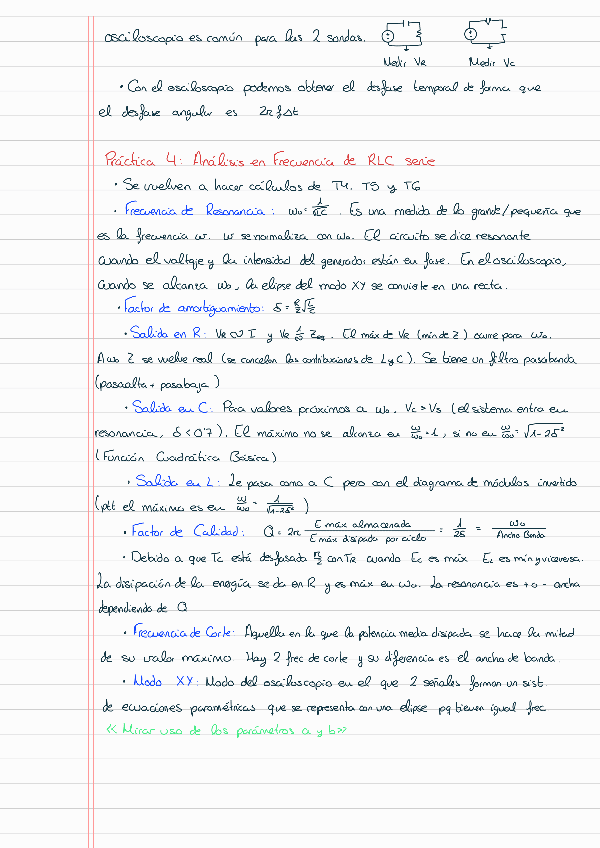 osciloscopio es común para las 2 sondas.
Medir VR Medir Vc
· Con el osciloscopio podemos obtener el desfase temporal de forma que
el desfase angular es 2πfΔt
Práctica 4: Análisis en Frecuencia de RLC serie
· Se vuelven a hacer cálculos de T4, T5 y T6
· Frecuencia de Resonancia: ω₀=1/√LC. Es una medida de lo grande/pequeña que
es la frecuencia ω. ω se normaliza con ω₀. El circuito se dice resonante
cuando el voltaje y la intensidad del generador están en fase. En el osciloscopio,
cuando se alcanza ω₀, la elipse del modo XY se convierte en una recta.
· Factor de amortiguamiento: δ=R/2 √C/L
· Salida en R: VR ∝ I y VR ∝ 1/Zeq. El máx de VR (mín de Z) ocurre para ω₀.
A ω₀ Z se vuelve real (se cancelan las contribuciones de L y C). Se tiene un filtro pasabanda
(pasaalta + pasabaja)
· Salida en C: Para valores próximos a ω₀, Vc > Vs (el sistema entra en
resonancia, δ < 0'7). El máximo no se alcanza en ω/ω₀=1, si no en ω/ω₀=√1-2δ²
(Función Cuadrática Básica)
· Salida en L: Le pasa como a C pero con el diagrama de módulos invertido
(ptt el máximo es en ω/ω₀ = 1/√1-2δ²)
· Factor de Calidad: Q = 2π E máx almacenada / E máx disipada por ciclo = 1/2δ = ω₀/Ancho Banda
· Debido a que Tc está desfasada π/2 con TR cuando Ec es máx EL es mín y viceversa.
La disipación de la energía se da en R y es máx en ω₀. La resonancia es + o - ancha
dependiendo de Q
· Frecuencia de Corte: Aquella en la que la potencia media disipada se hace la mitad
de su valor máximo. Hay 2 frec de corte y su diferencia es el ancho de banda.
· Modo XY: Modo del osciloscopio en el que 2 señales forman un sist.
de ecuaciones paramétricas que se representa con una elipse pq tienen igual frec
<< Mirar uso de los parámetros a y b >>